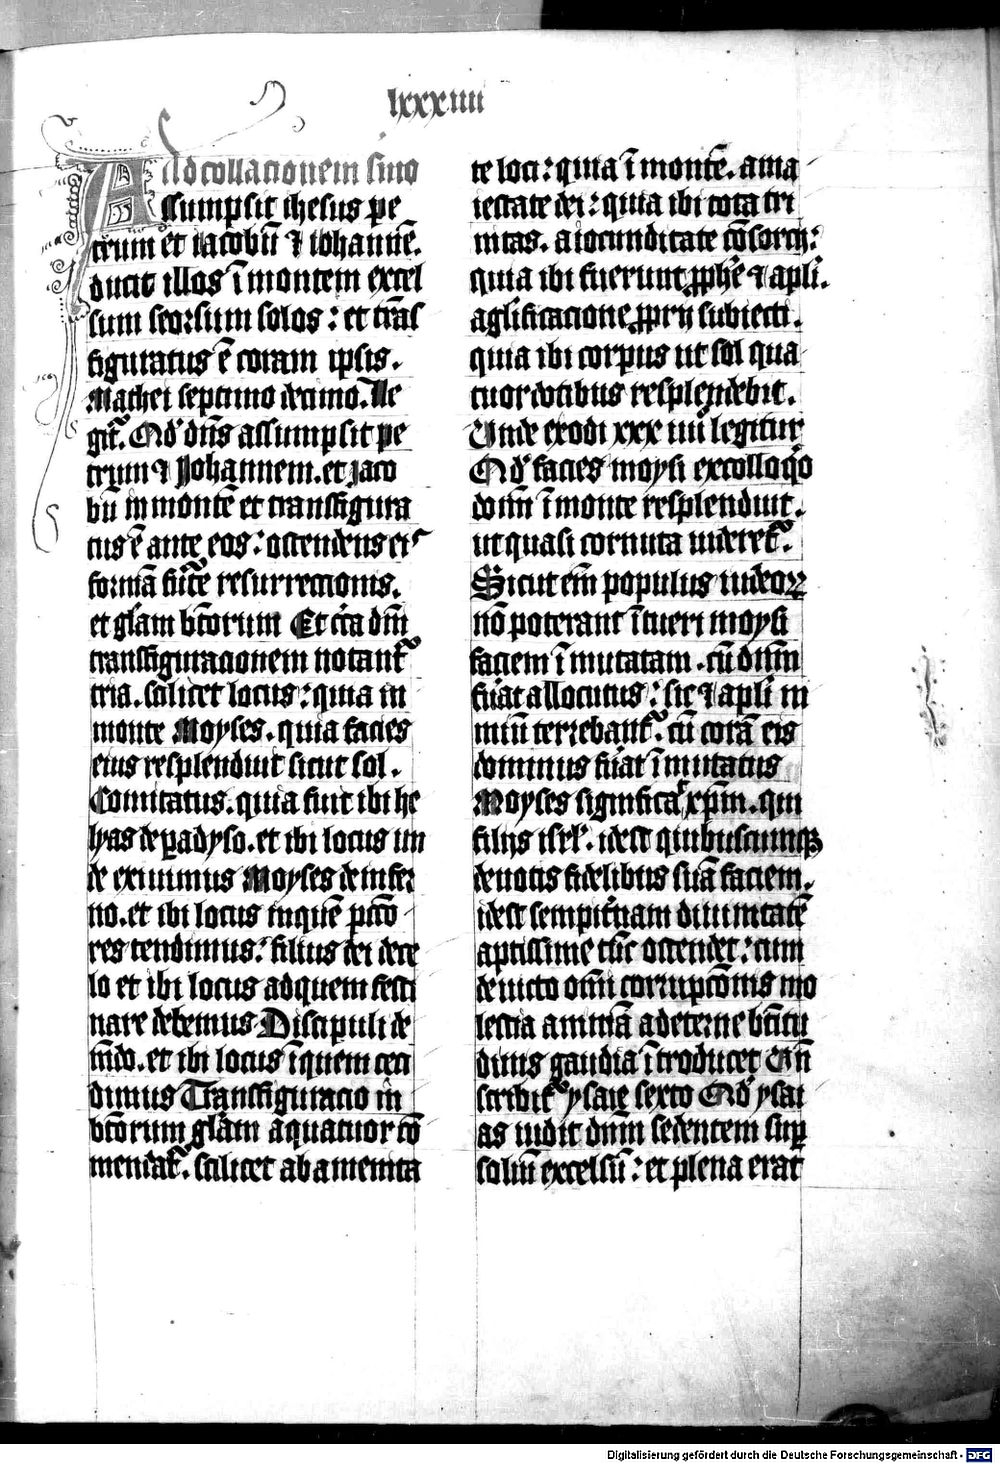 lxxxiiii
Ad collacionem sino
Assumpsit ihesus pe
trum et iacobū ⁊ iohannē.
ducit illos ī montem excel
sum seorsum solos : et trās
figuratus ē coram ipsis.
Mathei septimo decimo. Le
git᷑. Qd' dn̄s assumpsit pe
trum ⁊ Johannem. et Jaco
bū in montē et transfigura
tus ē ante eos : ostendens eis
formā sūc̄e resurrectionis.
et gl̄am b̄torum Et c̄ca dn̄i
transfiguracionem notant᷑
tria. scilicet locus : quia in
monte Moyses. quia facies
eius resplenduit sicut sol.
Comitatus. quia fuit ibi he
lyas de ꝑadyso. et ibi locus un
de exiuimus Moyses de infer
no. et ibi locus in quē pctō
res tendimus : filius dei de ce
lo et ibi locus ad quem festi
nare debemus Discipuli de
mūdo. et ibi locus ī quem ceci
dimus Transfiguracio in
b̄torum gl̄am a quatuor cō
mendat᷑. scilicet ab ameni­ta
te loci : quia ī monte. a ma
iestate dei : quia ibi tota tri
nitas. a iocunditate cōsorcij :
quia ibi fuerunt ꝓphē ⁊ apl̄i.
a gl̄ificacione ꝓprij subiecti.
quia ibi corpus ut sol qua
tuor dotibus resplendebit.
Unde exodi xxxiiii legitur
Qd' facies moysi ex colloq̊
domī ī monte resplenduit.
ut quasi cornuta videret᷑.
Sicut em̄ populus iudeoꝝ
nō poterant ītueri moysi
faciem ī mutatam. cū dn̄m
fūat allocutus : sic ⁊ apl̄i ni
miū terrebant᷑. cū corā eis
dominus fūat ī mutatus
Moyses significat xp̄m. qui
filijs isrl'. idest quibuscumqꝫ
deuotis fidelibus suā faciem.
idest sempit'nam diuinitatē
aptissime tūc ostendet : cum
deuicto om̄i corrupcōnis mo
lestia animā ad eterne b̄titu
dinis gaudia ītroducet Vn̄
scribit᷑ ysaie sexto Qd' ysai
as uidit dn̄m sedentem sup
soliū excelsū : et plena erat
Digitalisierung gefördert durch die Deutsche Forschungsgemeinschaft - DFG